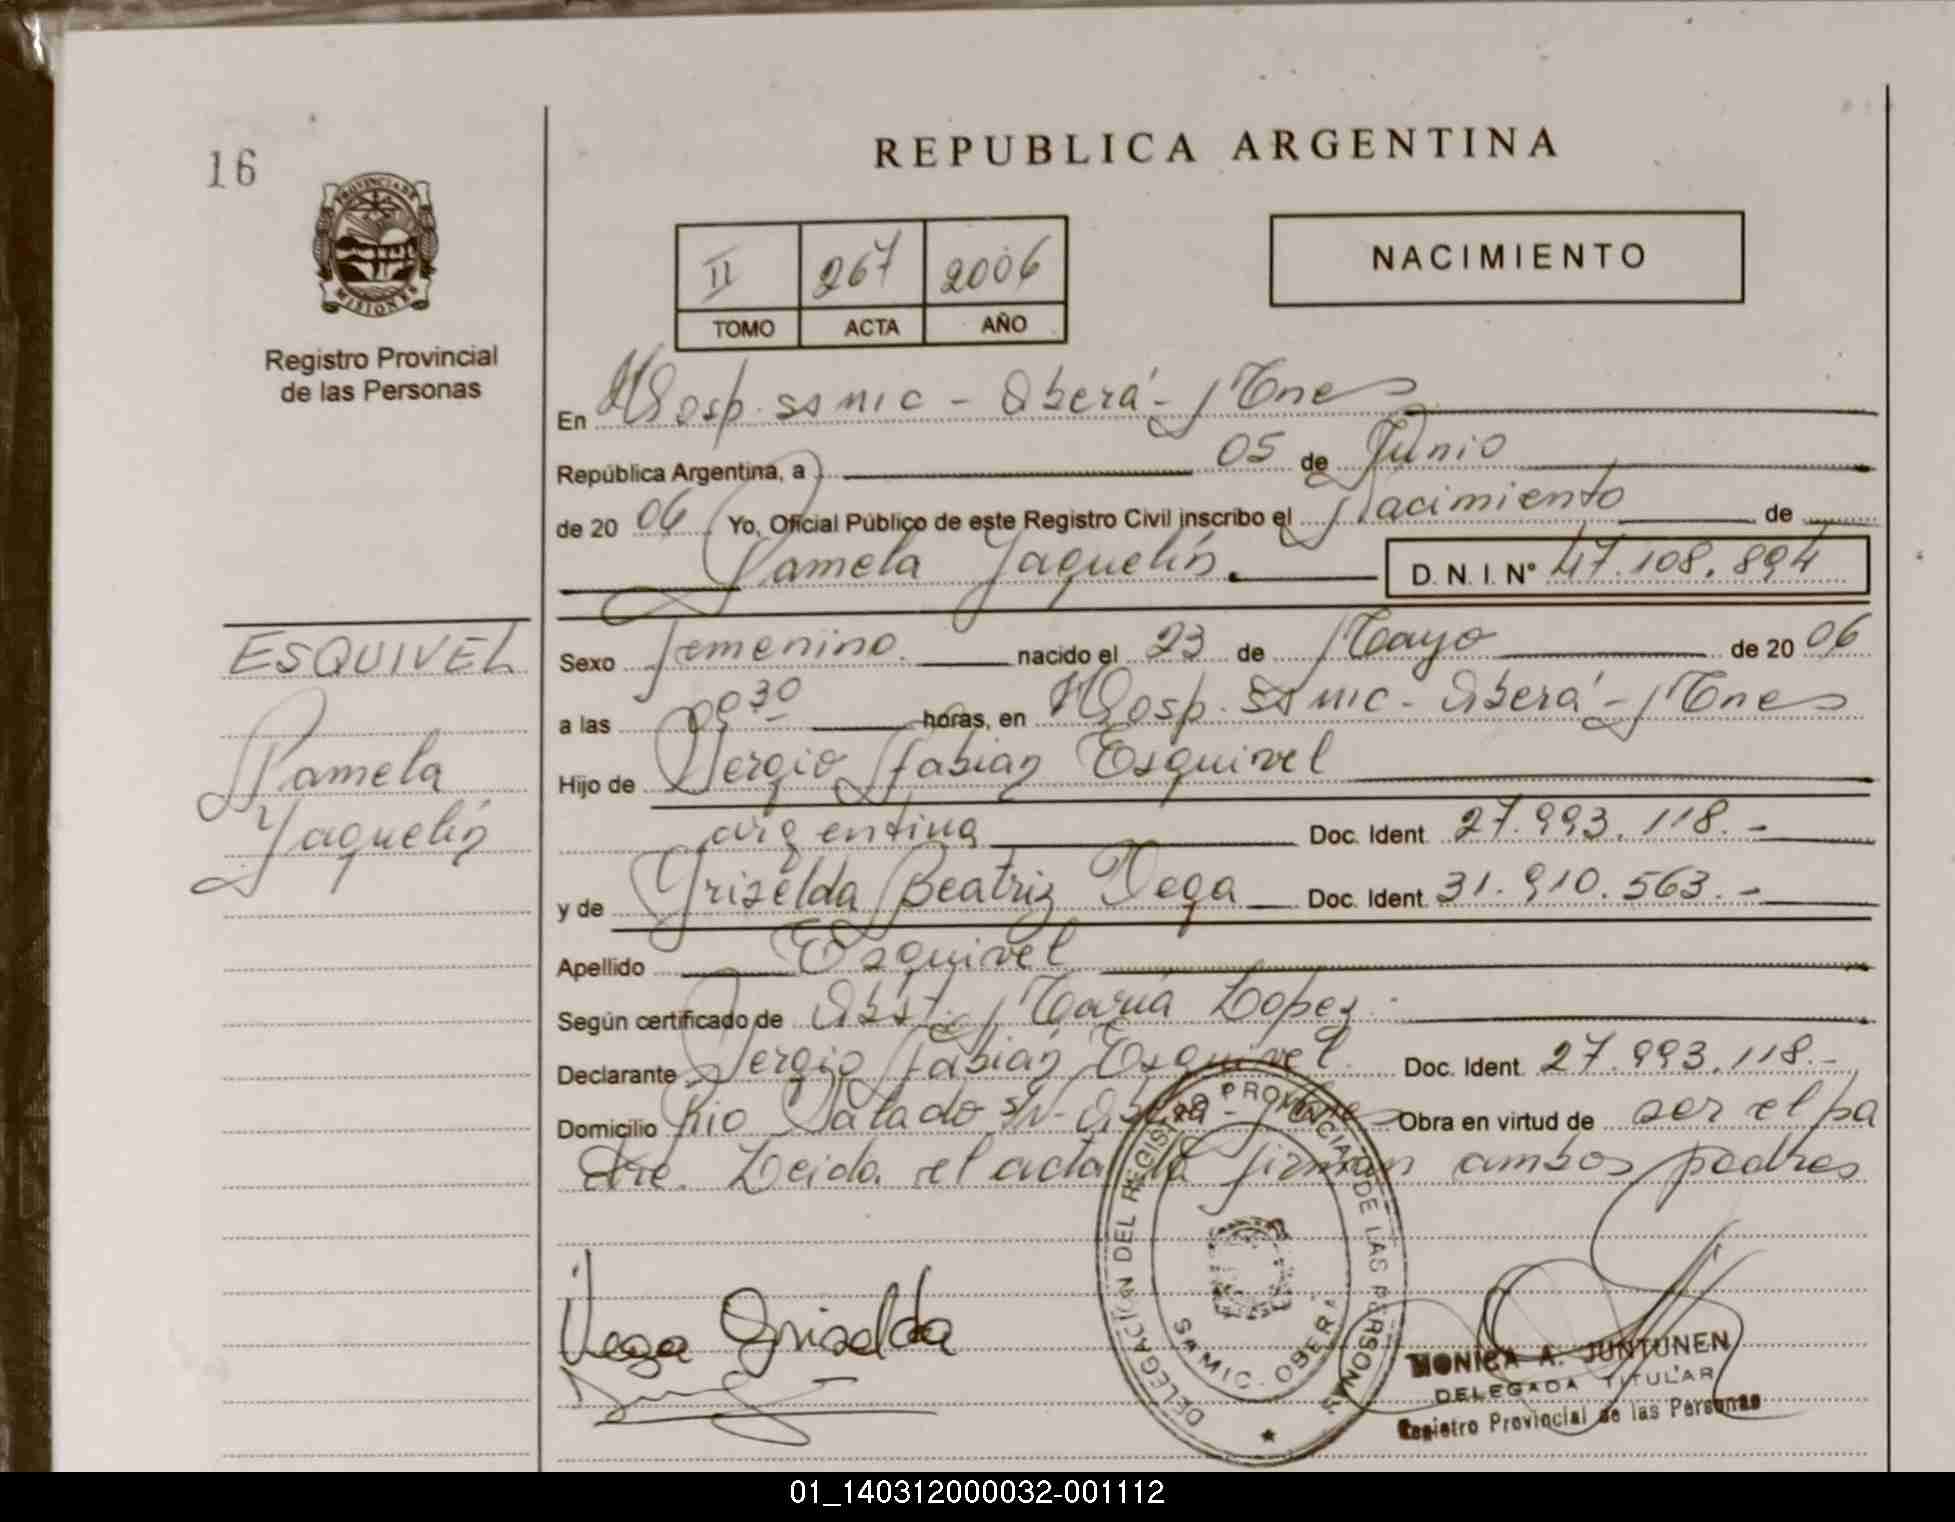 16
REPUBLICA ARGENTINA
PROVINCIA DE
MISIONES
Registro Provincial
de las Personas
II 267 2006
TOMO ACTA AÑO
NACIMIENTO
En Hosp. SAMIC - Oberá - Mnes
República Argentina, a 05 de Junio
de 2006 Yo, Oficial Público de este Registro Civil inscribo el Nacimiento de
Pamela Yaquelín. D. N. I. Nº 47.108.894
ESQUIVEL
Pamela
Yaquelín
Sexo Femenino. nacido el 23 de Mayo de 2006
a las 0030 horas, en Hosp. SAMIC - Oberá - Mnes
Hijo de Sergio Fabián Esquivel
argentina Doc. Ident. 27.993.118.-
y de Griselda Beatriz Vega Doc. Ident. 31.910.563.-
Apellido Esquivel
Según certificado de Obst. María Lopez.
Declarante Sergio Fabián Esquivel Doc. Ident. 27.993.118.-
Domicilio Río Salado s/n - Oberá - Mnes Obra en virtud de ser el pa
dre. Leida el acta la firman ambos padres
Vega Griselda
DELEGACIÓN DEL REGISTRO PROVINCIAL DE LAS PERSONAS
SAMIC. OBERA
MONICA A. JUNTUNEN
DELEGADA TITULAR
Registro Provincial de las Personas
01_140312000032-001112